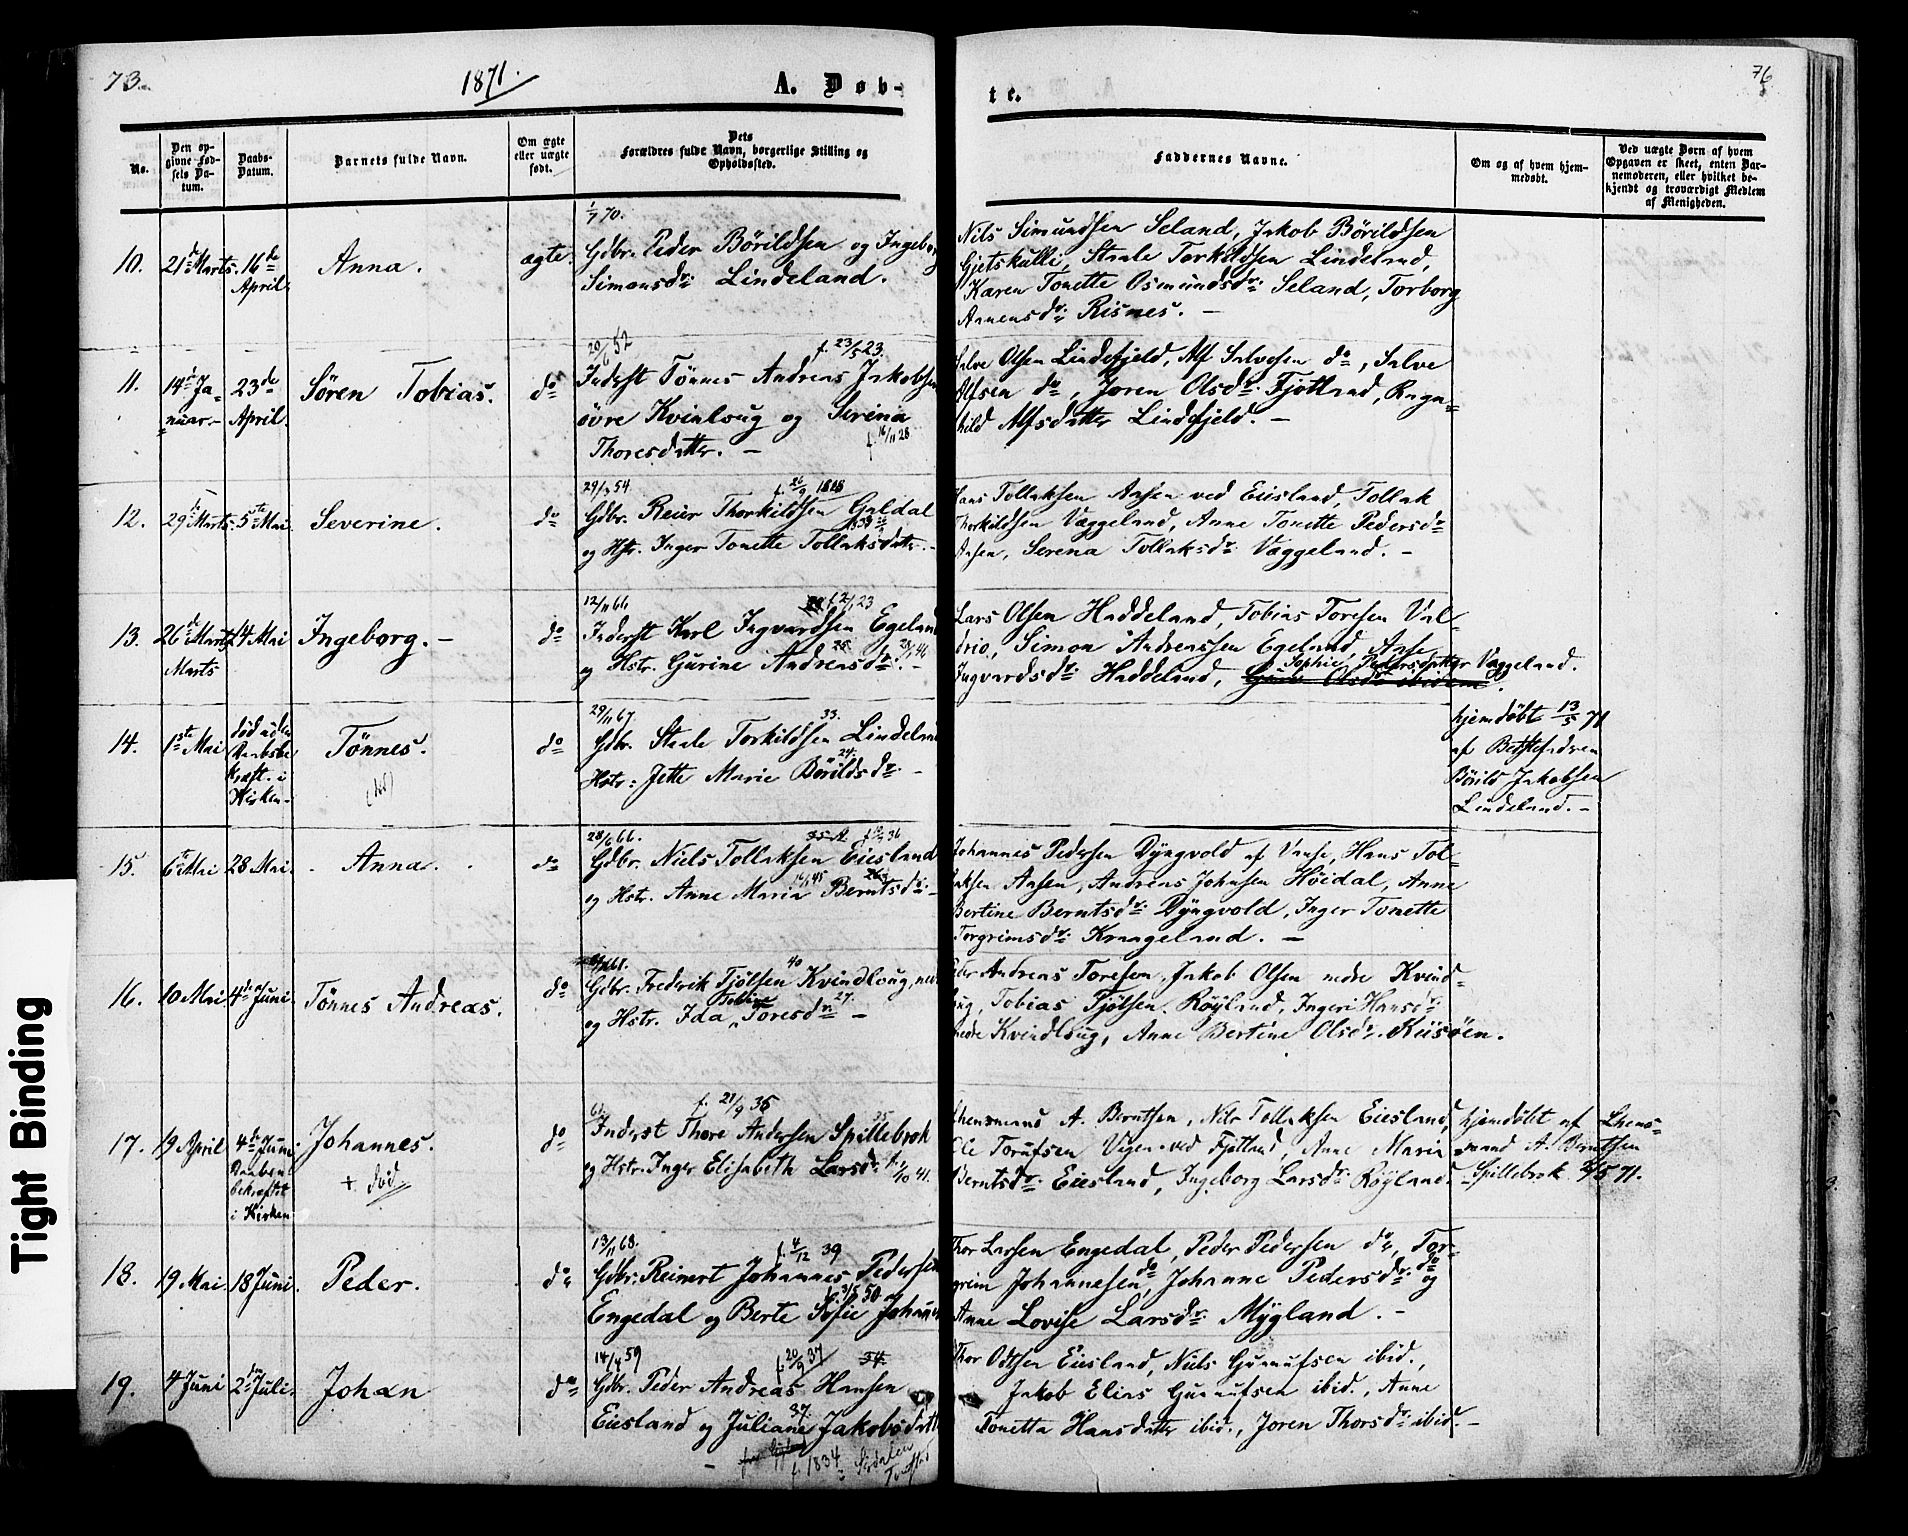 73.
1871.
A. Døb-
No.
Den op-
givne Fød-
sels Da-
tum.
Daabs-
Datum.
Barnets fulde Navn.
Om ægte
eller uægte
født.
Dets
Forældres fulde Navn, borgerlige Stilling og
Opholdssted.
10.
21de Marts.
16de
April.
Anna.
ægte.
1/7 70.
Gdbr. Peder Börildsen og Ingeborg
Simonsdr. Lindeland.
11.
14de Ja-
nuar.
23de
April.
Sören Tobias.
do
20/6 52
f. 23/5 23.
Inderst Tönnes Andreas Jakobsen
övre Kvinlaug og Serina
f. 16/11 28
Thoresdatter. -
12.
29de Marts.
5te Mai.
Severine.
do
29/3 54
f. 26/9 1818
Gdbr. Reier Thorkildsen Guldal
og Hstr. Inger Tonette Tollaksdatr. -
13.
26de Marts
Marts
14 Mai
Ingeborg. -
do
12/11 66
f. 2/1 23
Inderst Karl Ingvardsen Egeland
og Hstr. Gurine Andreasdr. -
14.
1ste Mai
død uden
Daabsbe
kræft. i
Kirken -
Tönnes.
do
29/11 67.
33.
Gdbr. Staale Torkildsen Lindeland
24.
Hstr: Jette Marie Börildsdr. -
15.
6te Mai
28 Mai.
Anna.
do
28/6 66.
Gdbr. Niels Tollaksen Eiesland
og Hstr. Anne Maria Berntsdr. -
16.
10 Mai
4de Juni.
Tönnes Andreas.
do
40
Gdbr. Frederik Fjölsen Kvindlaug, nedre
27.
og Hstr. Ida Toresdr. -
17.
19 April
4de Juni
Daaben
bekræftet
i Kirken
Johannes.
+ död
do
f. 21/9 35
Inderst Thore Andersen Spillebrok
og Hstr. Inger Elisabeth Larsdr. f. 1/10 41.
18.
19 Mai.
18 Juni.
Peder.
do
13/11 68.
f. 4/12 39
Gdbr. Reinert Johannes Pedersen
f. 3/5 50
Engedal og Berte Sofie Johann
19.
4 Juni
2den Juli.
Johan
do
14/4 59
f. 20/9 37
Gdbr. Peder Andreas Hansen
37
Eiesland og Juliane Jakobsdatt
f. 1834 Sirdalen
te.
76
Faddernes Navne.
Om og af hvem hjem-
medøbt.
Ved uægte Børn af hvem
Opgaven er skeet, enten Bar-
nemoderen, eller hvilket be-
kjendt og troværdigt Medlem
af Menigheden.
Nils Simundsen Seland, Jakob Börildsen
Gjetskulli, Staale Torkildsen Lindeland,
Karen Tonette Osmundsdr. Seland, Torborg
Arnensdr. Risnes. -
Salve Olsen Lindefjeld, Alf Salvesen do, Salve
Alfsen do, Joren Olsdr. Fjotland, Ragn-
hild Alfsdatter Lindefjeld. -
Hans Tollaksen Aasen ved Eiesland, Tollak
Thorkildsen Væggeland, Anne Tonette Pedersdr.
Aasen, Serena Tollaksdr. Væggeland. -
Lars Olsen Haddeland, Tobias Toresen Val-
drio, Simon Andreassen Egeland, Aase
Sophie Pedersdatter Væggeland.
Ingvardsdr. Haddeland,
hjemdöbt 13/5 71
af Bedstefadren
Börild Jakobsen
Lindeland. -
Johannes Pedersen Dyngvold af Vanse, Hans Tol-
laksen Aasen, Andreas Johnsen Höidal, Anne
Bertine Berntsdr. Dyngvold, Inger Tonette
Torgrimsdr. Kraageland. -
Peder Andreas Toresen, Jakob Olsen nedre Kvind-
laug, Tobias Fjölsen Röyland, Ingeri Hansdr.
nedre Kvindlaug, Anne Bertine Olsdr. Kusöen.
Lhensmand A. Berntsen, Nils Tollaksen Eiesland,
Ole Torufsen Vegen ved Fjotland, Anne Maria
Berntsdr. Eiesland, Ingeborg Larsdr. Röyland.
hjemdöbt af Lhens-
mand A. Berntsen
Spillebrok 2/5 71.
Thor Larsen Engedal, Peder Pedersen do, Tor-
grim Johannesen do, Johanne Pedersdr. do og
Anne Lovise Larsdr. Mygland. -
Thor Odtsen Eiesland, Niels Gunnufsen ibid.,
Jakob Elias Gunnufsen ibid., Anne
Tonetta Hansdatter ibid., Joren Thorsdr. ibid. -
Tight Binding